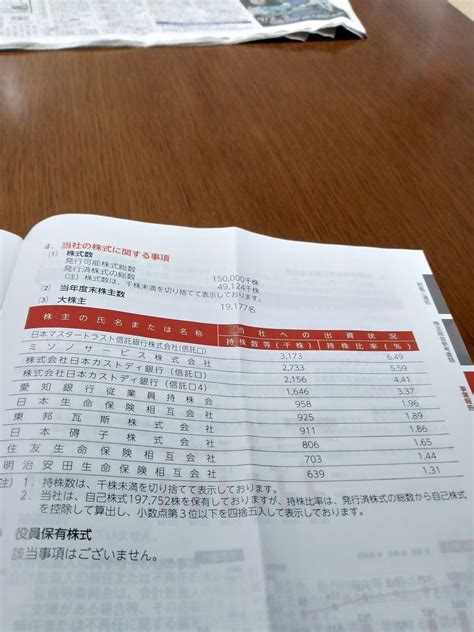 4．当社の株式に関する事項
(1) 株式数
発行可能株式総数 150,000千株
発行済株式の総数 49,124千株
(注) 株式数は、千株未満を切り捨てて表示しております。
(2) 当年度末株主数 19,177名
(3) 大株主
株主の氏名または名称 当社への出資状況
持株数等(千株) 持株比率(%)
日本マスタートラスト信託銀行株式会社(信託口) 3,173 6.49
ミソノサービス株式会社 2,733 5.59
株式会社日本カストディ銀行(信託口) 2,156 4.41
株式会社日本カストディ銀行(信託口4) 1,646 3.37
愛知銀行従業員持株会 958 1.96
日本生命保険相互会社 925 1.89
東邦瓦斯株式会社 911 1.86
日本碍子株式会社 806 1.65
住友生命保険相互会社 703 1.44
明治安田生命保険相互会社 639 1.31
(注) 1．持株数は、千株未満を切り捨てて表示しております。
2．当社は、自己株式197,752株を保有しておりますが、持株比率は、発行済株式の総数から自己株式
を控除して算出し、小数点第3位以下を四捨五入して表示しております。
役員保有株式
該当事項はございません。